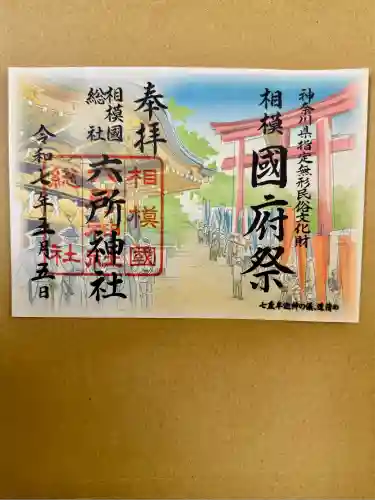 神奈川県指定無形民俗文化財
相模國府祭
七度半迎神の儀、道清め
奉拝
相模國
総社
六所神社
令和七年五月五日
相模國
総社